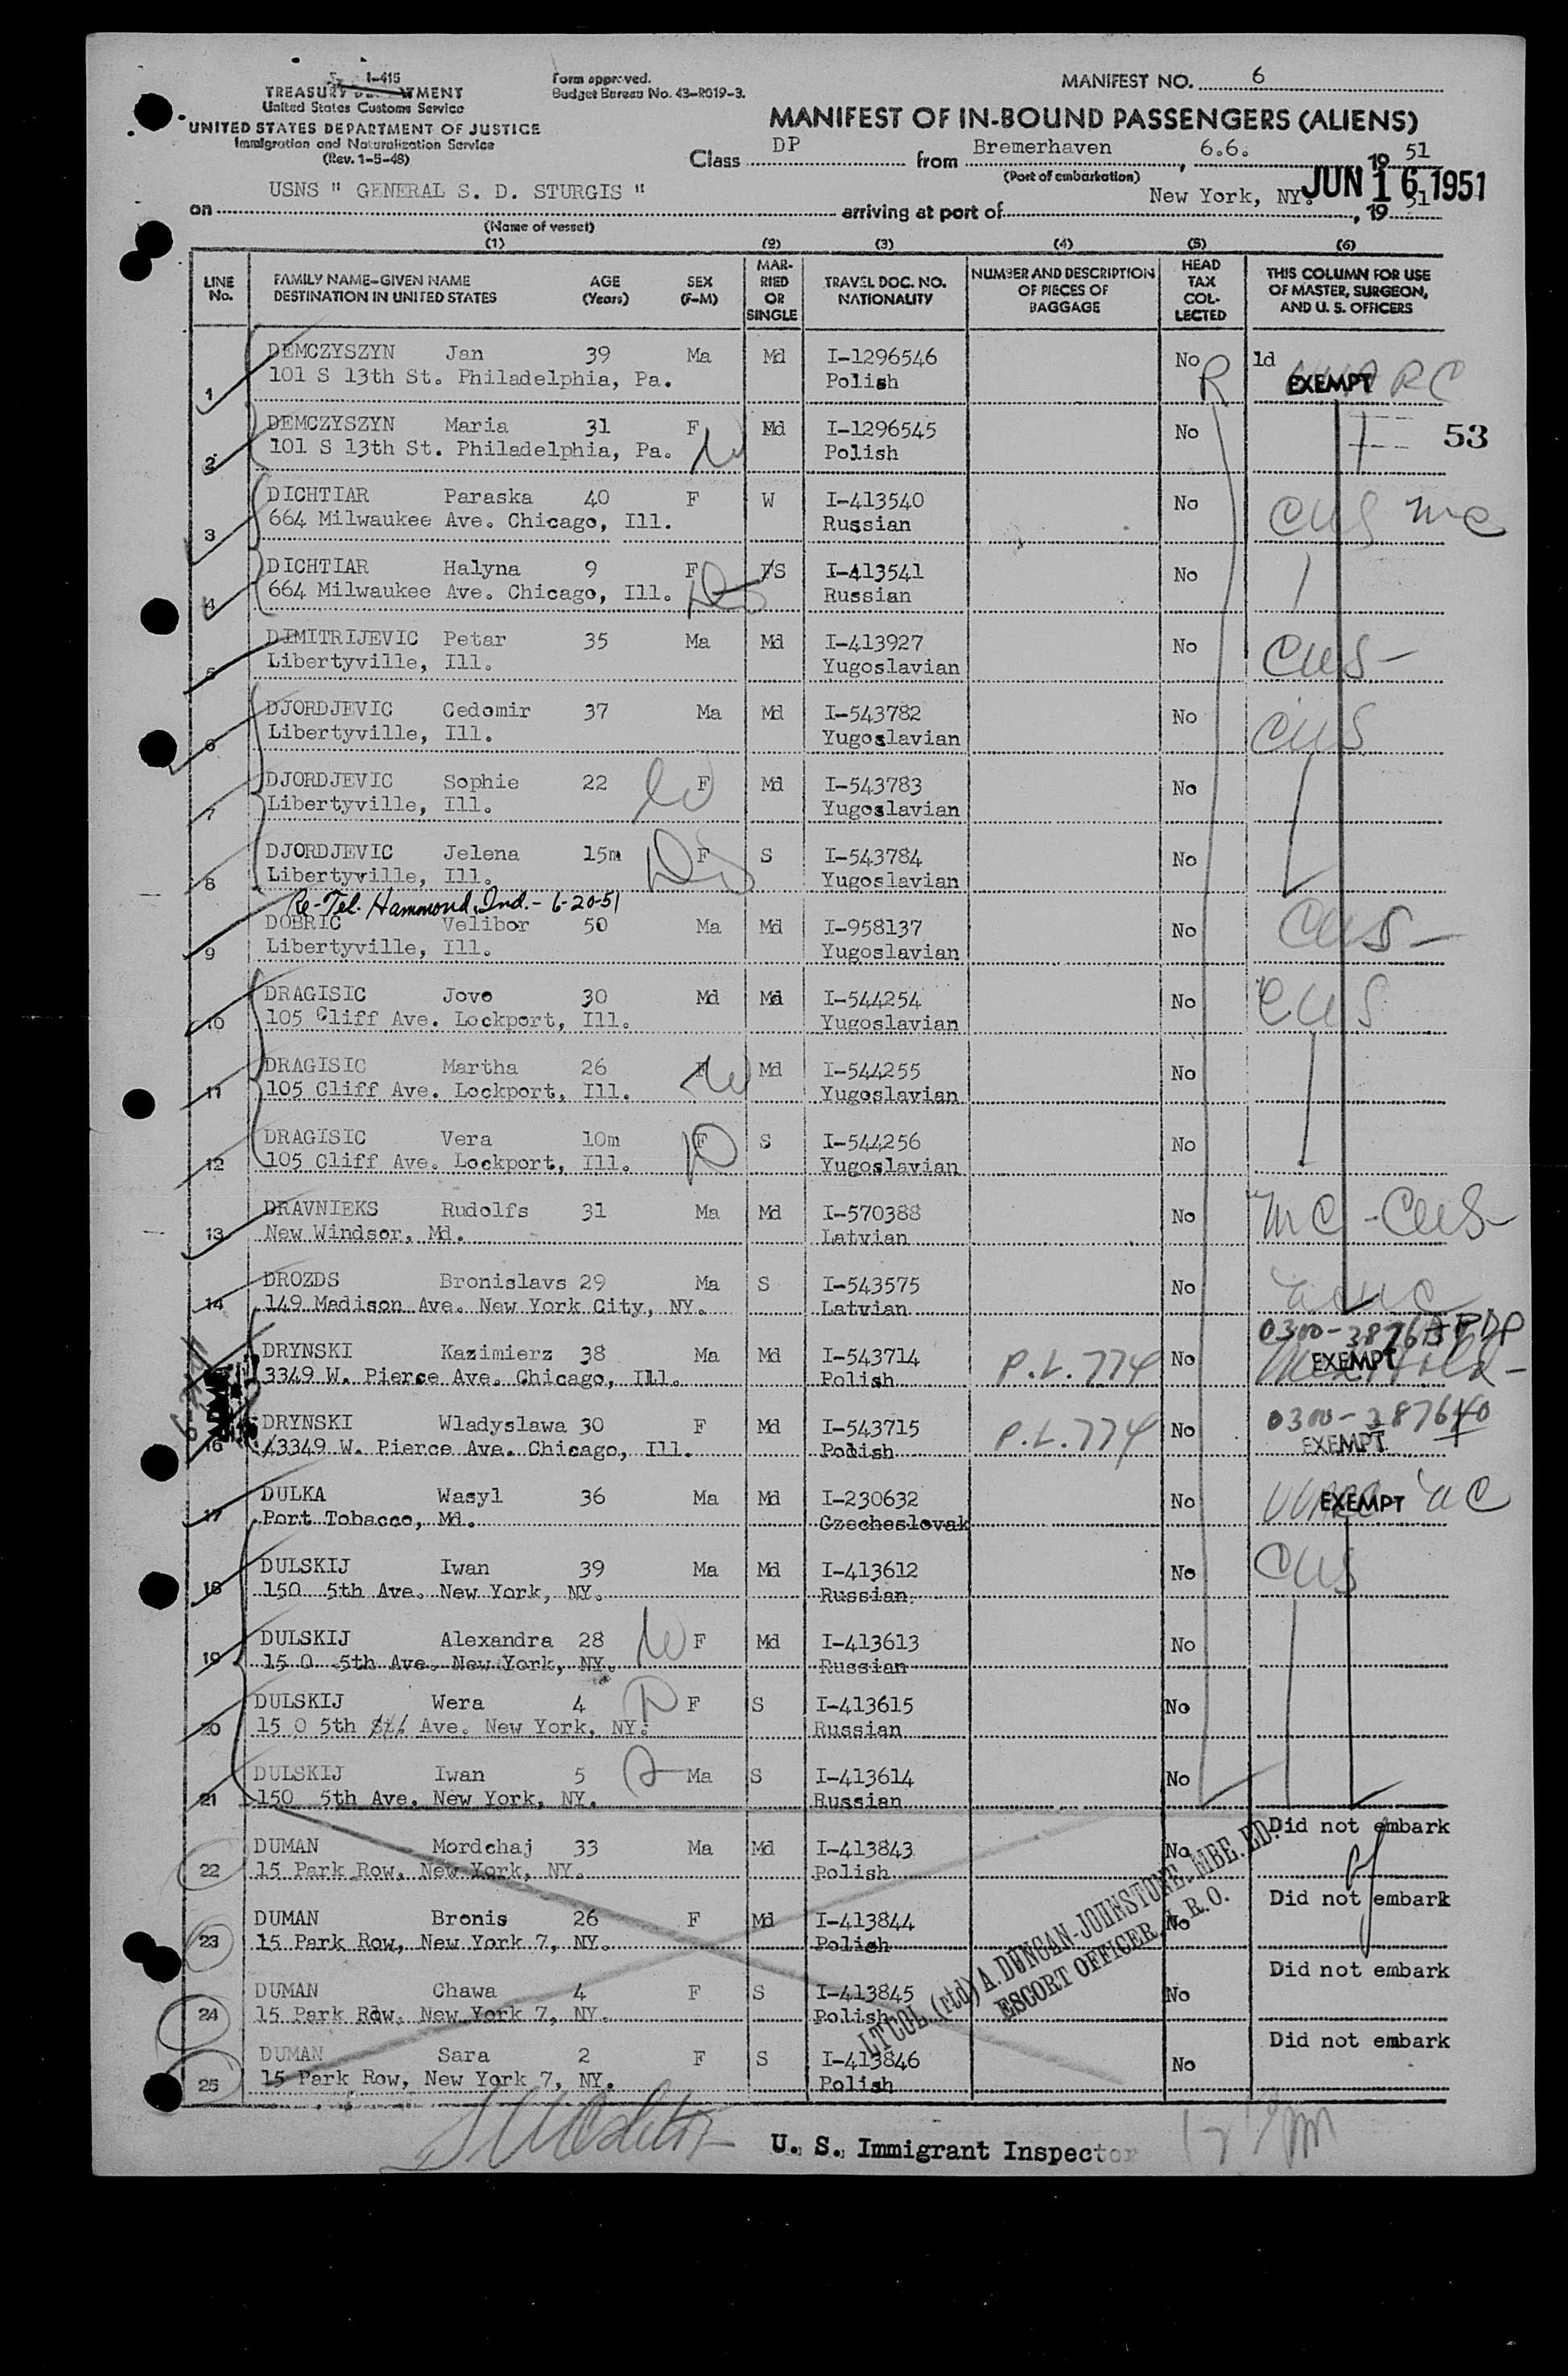 I-415
TREASURY DEPARTMENT
United States Customs Service
UNITED STATES DEPARTMENT OF JUSTICE
Immigration and Naturalization Service
(Rev. 1-5-48)
Form approved.
Budget Bureau No. 43-R019-3.
MANIFEST NO. 6
MANIFEST OF IN-BOUND PASSENGERS (ALIENS)
Class DP from Bremerhaven, 6.6. 1951
(Port of embarkation)
on USNS " GENERAL S. D. STURGIS " arriving at port of New York, NY. JUN 16 1951, 1951
(Name of vessel)
(1) (2) (3) (4) (5) (6)
LINE No. FAMILY NAME-GIVEN NAME DESTINATION IN UNITED STATES AGE (Years) SEX (F-M) MARRIED OR SINGLE TRAVEL DOC. NO. NATIONALITY NUMBER AND DESCRIPTION OF PIECES OF BAGGAGE HEAD TAX COLLECTED THIS COLUMN FOR USE OF MASTER, SURGEON, AND U. S. OFFICERS
DEMCZYSZYN Jan 39 Ma Md I-1296546 No R 1d
1 101 S 13th St. Philadelphia, Pa. Polish EXEMPT RC
DEMCZYSZYN Maria 31 F Md I-1296545 No 53
2 101 S 13th St. Philadelphia, Pa. Polish
DICHTIAR Paraska 40 F W I-413540 No
3 664 Milwaukee Ave. Chicago, Ill. Russian CUS mc
DICHTIAR Halyna 9 F S I-413541 No
4 664 Milwaukee Ave. Chicago, Ill. Russian
DIMITRIJEVIC Petar 35 Ma Md I-413927 No
5 Libertyville, Ill. Yugoslavian CUS -
DJORDJEVIC Cedomir 37 Ma Md I-543782 No
6 Libertyville, Ill. Yugoslavian CUS
DJORDJEVIC Sophie 22 F Md I-543783 No
7 Libertyville, Ill. Yugoslavian
DJORDJEVIC Jelena 15m F S I-543784 No
8 Libertyville, Ill. Yugoslavian
Re-Tel. Hammond, Ind. - 6-20-51
DOBRIC Velibor 50 Ma Md I-958137 No
9 Libertyville, Ill. Yugoslavian CUS -
DRAGISIC Jovo 30 Md Md I-544254 No CUS
10 105 Cliff Ave. Lockport, Ill. Yugoslavian
DRAGISIC Martha 26 F Md I-544255 No
11 105 Cliff Ave. Lockport, Ill. Yugoslavian
DRAGISIC Vera 10m F S I-544256 No
12 105 Cliff Ave. Lockport, Ill. Yugoslavian
DRAVNIEKS Rudolfs 31 Ma Md I-570388 No mc - CUS -
13 New Windsor, Md. Latvian
DROZDS Bronislavs 29 Ma S I-543575 No
14 149 Madison Ave. New York City, NY. Latvian
DRYNSKI Kazimierz 38 Ma Md I-543714 P.L. 774 No
3349 W. Pierce Ave. Chicago, Ill. Polish EXEMPT
DRYNSKI Wladyslawa 30 F Md I-543715 P.L. 774 No 0300-387640
16 3349 W. Pierce Ave. Chicago, Ill. Polish EXEMPT
DULKA Wasyl 36 Ma Md I-230632 No EXEMPT
17 Port Tobacco, Md. Czecheslovak
DULSKIJ Iwan 39 Ma Md I-413612 No CUS
18 150 5th Ave. New York, NY. Russian
DULSKIJ Alexandra 28 F Md I-413613 No
19 15 0 5th Ave. New York, NY. Russian
DULSKIJ Wera 4 F S I-413615 No
20 15 0 5th Ave. New York, NY. Russian
DULSKIJ Iwan 5 Ma S I-413614 No
21 150 5th Ave. New York, NY. Russian
DUMAN Mordchaj 33 Ma Md I-413843 No Did not embark
22 15 Park Row, New York, NY. Polish
DUMAN Bronis 26 F Md I-413844 No Did not embark
23 15 Park Row, New York 7, NY. Polish
DUMAN Chawa 4 F S I-413845 No Did not embark
24 15 Park Row, New York 7, NY. Polish
DUMAN Sara 2 F S I-413846 No Did not embark
25 15 Park Row, New York 7, NY. Polish
LTCOL (rtd) A. DUNCAN-JOHNSTONE. MBE. ED.
ESCORT OFFICER I. R. O.
U. S. Immigrant Inspector